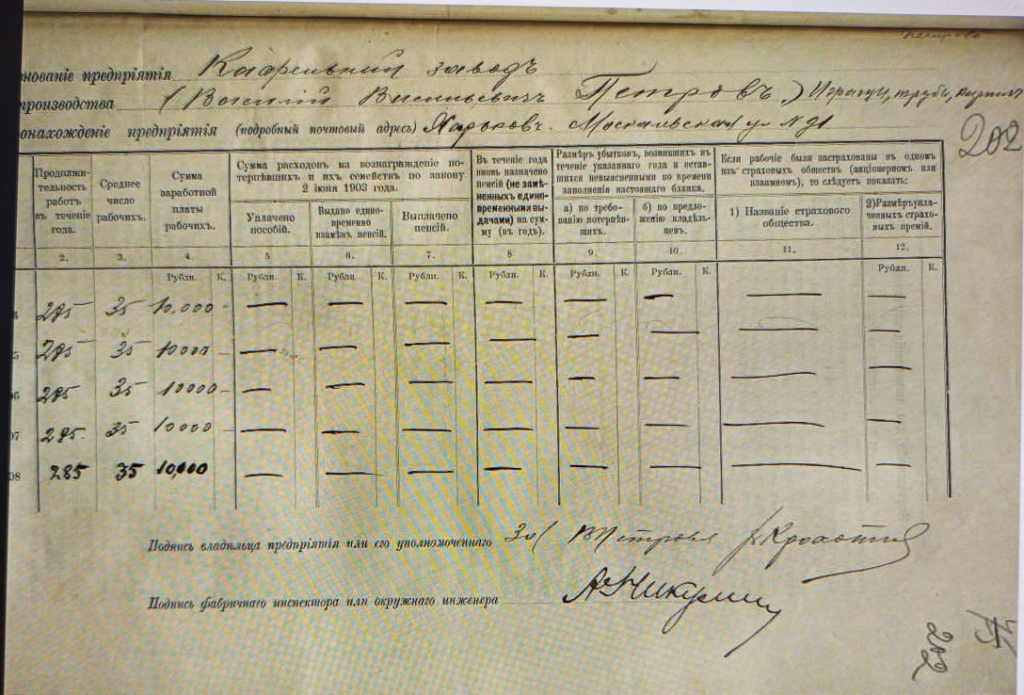 нованіе предпріятія Кафельный заводъ
производства (Василій Васильевичъ Петровъ) Изразцы, трубы, кирпич
онахожденіе предпріятія (подробный почтовый адресъ) Харьковъ. Москалевская ул N 91
202
Продолжительность работъ въ теченіе года.
Среднее число рабочихъ.
Сумма заработной платы рабочихъ.
Сумма расходовъ на вознагражденіе потерпѣвшихъ и ихъ семействъ по закону 2 іюня 1903 года.
Уплачено пособій.
Выдано единовременно взамѣнъ пенсій.
Выплачено пенсій.
Въ теченіе года вновь назначено пенсій (не замѣненныхъ единовременными выдачами) на сумму (въ годъ).
Размѣръ убытковъ, возникшихъ въ теченіе указаннаго года и оставшихся невыясненными ко времени заполненія настоящаго бланка.
а) по требованію потерпѣвшихъ.
б) по предложенію владѣльцевъ.
Если рабочіе были застрахованы въ одномъ изъ страховыхъ обществъ (акціонерномъ или взаимномъ), то слѣдуетъ показать:
1) Названіе страхового общества.
2) Размѣръ уплаченныхъ страховыхъ премій.
2. 3. 4. 5 6. 7. 8 9. 10. 11. 12.
Рубли. К. Рубли. К. Рубли. К. Рубли. К. Рубли. К. Рубли. К. Рубли. К. Рубли. К.
285 35 10.000 - — — — — — — — —
5 285 35 10000 - — — — — — — — —
06 285 35 10000 - — — — — — — — —
07 285. 35 10000 - — — — — — — — —
08 285 35 10,000 — — — — — — — —
Подпись владѣльца предпріятія или его уполномоченнаго За В Петрова
Подпись фабричнаго инспектора или окружнаго инженера А Никулин
202